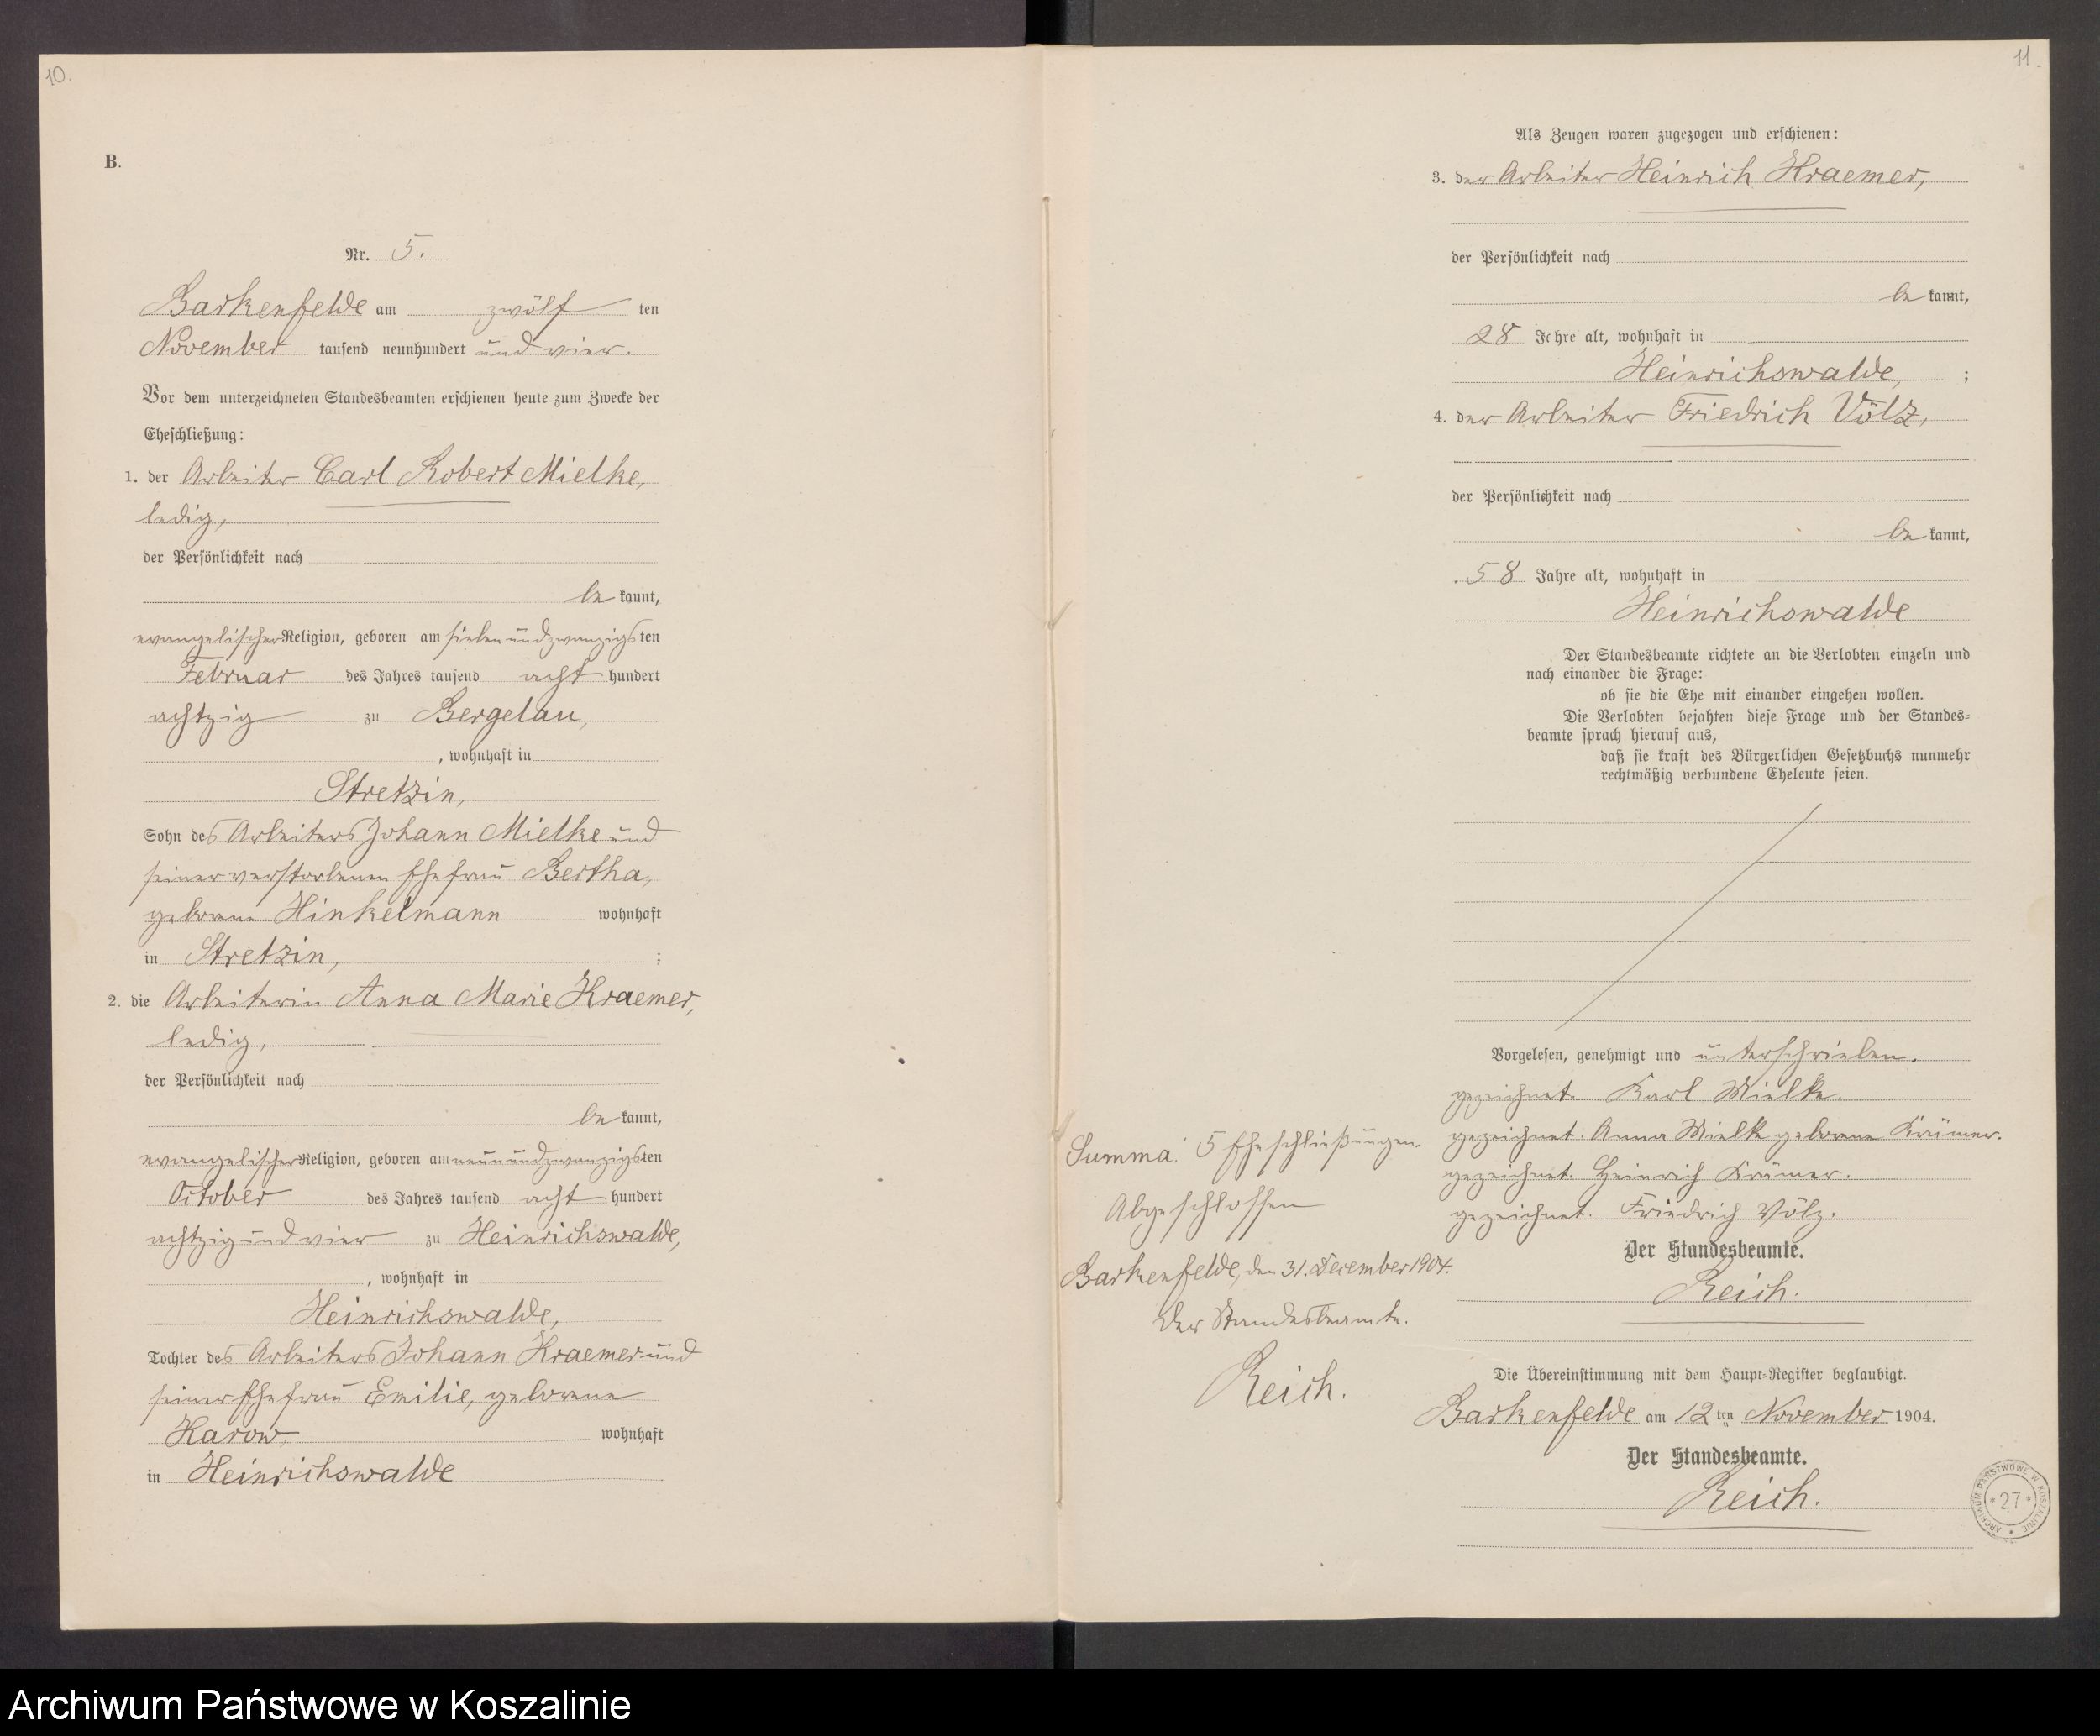 10.
B.
Nr. 5.
Barkenfelde am zwölf ten
November tausend neunhundert und vier.
Vor dem unterzeichneten Standesbeamten erschienen heute zum Zwecke der
Eheschließung:
1. der Arbeiter Carl Robert Mielke,
ledig,
der Persönlichkeit nach
be kannt,
evangelischer Religion, geboren am siebenundzwanzigsten
Februar des Jahres tausend acht hundert
achtzig zu Bergelau,
, wohnhaft in
Stretzin,
Sohn des Arbeiters Johann Mielke und
seiner verstorbenen Ehefrau Bertha,
geborene Hinkelmann wohnhaft
in Stretzin, ;
2. die Arbeiterin Anna Marie Kraemer,
ledig,
der Persönlichkeit nach
be kannt,
evangelischer Religion, geboren am neunundzwanzigsten
October des Jahres tausend acht hundert
achtzig und vier zu Heinrichswalde,
, wohnhaft in
Heinrichswalde,
Tochter des Arbeiters Johann Kraemer und
seiner Ehefrau Emilie, geborene
Karow, wohnhaft
in Heinrichswalde
11.
Als Zeugen waren zugezogen und erschienen:
3. der Arbeiter Heinrich Kraemer,
der Persönlichkeit nach
be kannt,
28 Jahre alt, wohnhaft in
Heinrichswalde, ;
4. der Arbeiter Friedrich Völz,
der Persönlichkeit nach
be kannt,
58 Jahre alt, wohnhaft in
Heinrichswalde
Der Standesbeamte richtete an die Verlobten einzeln und
nach einander die Frage:
ob sie die Ehe mit einander eingehen wollen.
Die Verlobten bejahten diese Frage und der Standes-
beamte sprach hierauf aus,
daß sie kraft des Bürgerlichen Gesetzbuchs nunmehr
rechtmäßig verbundene Eheleute seien.
Vorgelesen, genehmigt und unterschrieben.
gezeichnet. Karl Mielke.
gezeichnet. Anna Mielke geborene Krämer.
gezeichnet. Heinrich Krämer.
gezeichnet. Friedrich Völz.
Der Standesbeamte.
Reich.
Summa: 5 Eheschließungen.
Abgeschlossen
Barkenfelde, den 31. December 1904.
Der Standesbeamte.
Reich.
Die Übereinstimmung mit dem Haupt-Register beglaubigt.
Barkenfelde am 12 ten November 1904.
Der Standesbeamte.
Reich.
ARCHIWUM PAŃSTWOWE W KOSZALINIE
* 27 *
Archiwum Państwowe w Koszalinie